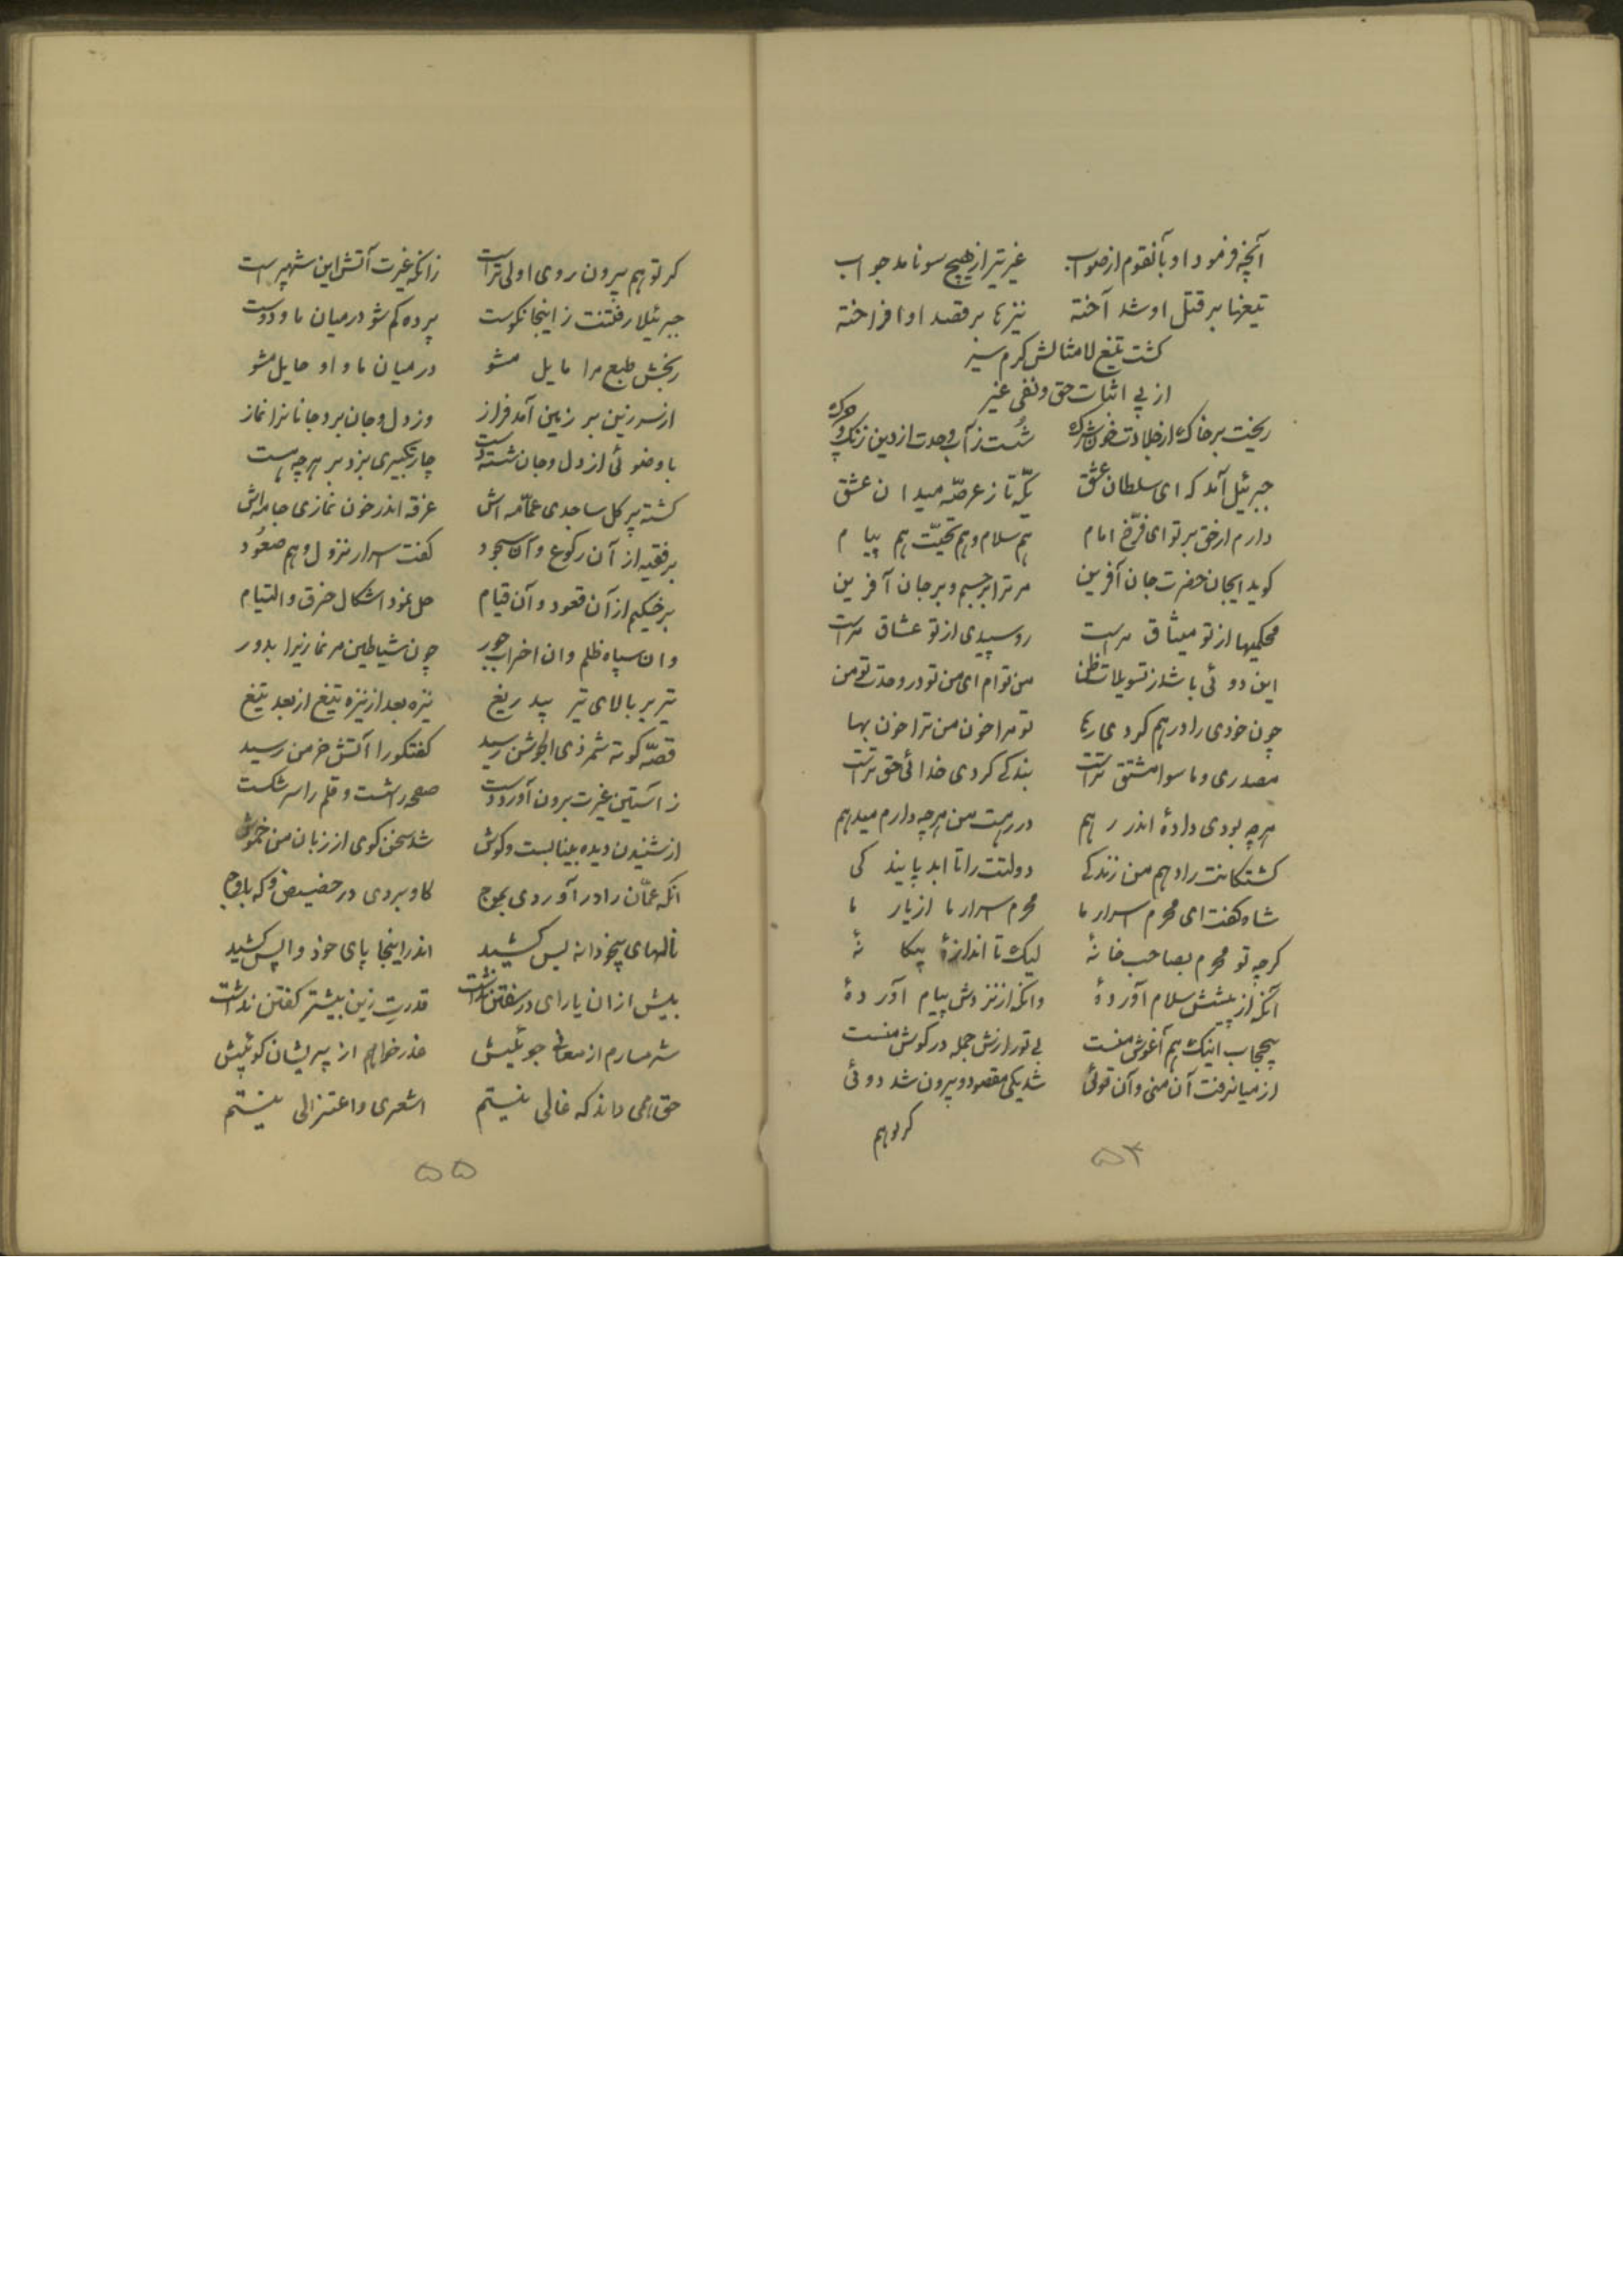 آنچه فرمود او بآنقوم از صواب غیر تیر از هیچ سو نامد جواب
تیغها بر قتل او شد آخته نیزه‌ها بر قصد او افراخته
کشت تیغ لا مثالش کرم سیر
از پی اثبات حق و نفی غیر
ریخت بر خاک از جلادت خون شرک شُست ز آب وحدت از دین زنک و چرک
جبرئیل آمد که ای سلطان عشق یکّه تاز عرصهٔ میدان عشق
دارم از حق بر تو ای فرّخ امام هم سلام و هم تحیّت هم پیام
کوید ایجان حضرت جان آفرین مر ترا بر جسم و بر جان آفرین
محکمیها از تو میثاق مراست رو سپیدی از تو عشاق مراست
این دوئی باشد ز تسویلات ظن من توام ای من تو در وحدت تو من
چون خودی را در رهم کردی رها تو مرا خون من ترا خون بها
مصدری و ماسوا مشتق تراست بندکی کردی خدائی حق تراست
هرچه بودی دادهٔ اندر رهم در رهت من هرچه دارم میدهم
کشتکانت را دهم من زندکی دولتت را تا ابد پایندکی
شاه کفت ای محرم اسرار ما محرم اسرار ما از یار ما
کرچه تو محرم بصاحب خانهٔ لیک تا اندازهٔ بیکانهٔ
آنکه از پیشش سلام آوردهٔ وانکه از نزدش پیام آوردهٔ
بیحجاب اینک هم آغوش منست بی تو رازش جمله در کوش منست
از میان رفت آن منی و آن توئی شد یکی مقصود و بیرون شد دوئی
کر تو هم
۵۴
کر تو هم بیرون روی اولی تر است زانکه غیرت آتش این شهپر است
جبرئیلا رفتنت زاینجا نکوست پرده کم شو در میان ما و دوست
رنجش طبع مرا مایل مشو در میان ما و او حایل مشو
از سر زین بر زمین آمد فراز وز دل و جان برد جانانرا نماز
با وضوئی از دل و جان شسته دست چار تکبیری بزد بر هرچه هست
کشته پر کل ساجدی عمّامه اش غرقه اندر خون نمازی جامه اش
بر فقیه از آن رکوع و آن سجود کفت اسرار نزول و هم صعُود
بر حکیم از آن قعود و آن قیام حل نمود اشکال خرق و التیام
وان سپاه ظلم وان احزاب جور چون شیاطین مر نمازیرا بدور
تیر بر بالای تیر بیدریغ نیزه بعد از نیزه تیغ از بعد تیغ
قصّه کوته شمر ذی الجوشن رسید کفتکو را آتش خرمن رسید
ز آستین غیرت برون آورد دست صفحه را شست و قلم را سر شکست
از شنیدن دیده بینا بست و کوش شد سخن کوی از زبان من خموش
انکه عمّان را در آوردی بموج کاو بردی در حضیض و که باوج
نالهای بیخودانه بس کشید اندر اینجا پای خود واپس کشید
بیش از ان یارای در سفتن نداشت قدرت زین بیشتر کفتن نداشت
شرمسارم از معانی جوئیش عذر خواهم از پریشان کوئیش
حق همی داند که غالی نیستم اشعری و اعتزالی نیستم
۵۵